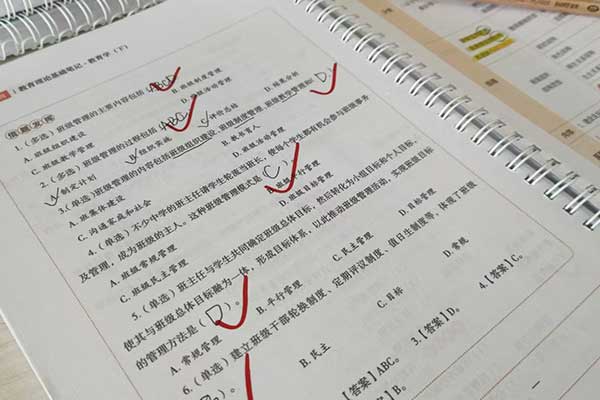 教育理论基础笔记·教育学（下）
1.（多选）班级管理的主要内容包括（ABCD）
A.班级组织建设
B.班级制度管理
C.班级教学管理
D.班级活动管理
2.（多选）班级管理的过程包括（ABC）
A.制定计划
B.组织实施
C.评价总结
D.结果分析
3.（单选）班级管理的内容包括班级组织建设、班级制度管理、班级教学管理和（D）
A.班集体建设
B.教书育人
C.沟通家庭和社会
D.班级活动管理
4.（单选）不少中学的班主任请学生轮流当班长，使每个学生都有机会参与班级事务
及管理，成为班级的主人。这种班级管理模式是（C）。
A.班级常规管理
B.班级平行管理
C.班级民主管理
D.班级目标管理
5.（单选）班主任与学生共同确定班级总体目标，然后转化为小组目标和个人目标，
使其与班级总体目标融为一体，形成目标体系，以此推动班级管理活动，实现班级目标
的管理方法是（D）。
A.常规管理
B.平行管理
C.民主管理
D.目标管理
6.（单选）建立班级干部轮换制度、定期评议制度、值日生制度等，体现了班级
B.民主
C.目标
D.常规
【答案】ABC。
3.【答案】D。
4.【答案】C。